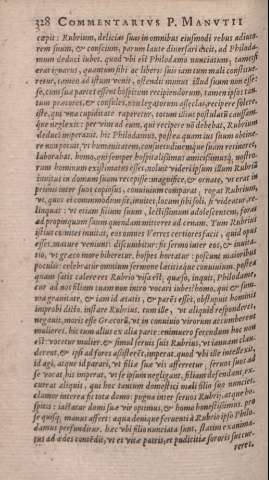 328 COMMENTARIUS P. MANUTII
cœpit: Rubrium, delicias suas in omnibus eiusmodi rebus adiuto-
rem suum, & conscium, parum laute diversari dicit, ad Philoda-
mum deduci iubet. quod ubi est Philodamo nunciatum, tametsi
erat ignarus, quantum sibi ac liberis suis iam tum mali constitue-
retur, tamen ad istum venit, ostendit munus illud suum non esse:
se, cum suæ partes essent hospitum recipiendorum, tamen ipsos tan-
tum prætores, & consules, non legatorum asseclas, recipere solere.
iste, qui una cupiditate raperetur, totum illius postulatum caussam-
que neglexit: per vim ad eum, qui recipere nō debebat, Rubrium
deduci imperavit. hic Philodamus, postea quam ius suum obtine-
re non potuit, ut humanitatem, consuetudinemque suam retineret,
laborabat. homo, qui semper hospitalissimus amicissimusq́, nostro-
rum hominum existimatus esset, noluit videri ipsum illum Rubriū
invitus in domum suam recepisse: magnifice, & ornate, ut erat in
primis inter suos copiosus, convivium comparat, rogat Rubrium,
ut, quos ei commodum sit, invitet, locum sibi soli, si videatur, re-
linquat: et etiam filium suum, lectissimum adolescentem, foras
ad propinquum suum quendam mitteret ad cenam. Tum Rubrius
istius comites invitat, eos omnes Verres certiores facit, quid opus
esset. mature veniunt: discumbitur: fit sermo inter eos, & invita-
tio, ut græco more biberetur. hospes hortatur: poscunt maioribus
poculis: celebratur omnium sermone lætitiaque convivium. postea
quam satis calere res Rubrio visa est, quæso, inquit, Philodame,
cur ad nos filiam tuam non intro vocari iubes? homo, qui & sum-
ma gravitate, & iam id ætatis, & parēs esset, obstupuit hominis
improbi dicto. instare Rubrius. tum ille, ut aliquid responderet,
negavit, moris esse Græcorū, ut in convivio virorum accumberent
mulieres. hic tum alius ex alia parte: enimvero ferendum hoc non
est: vocetur mulier. & simul servis suis Rubrius, ut ianuam clau-
derent, & ipsi ad fores assisterēt, imperat. quod ubi ille intellexit,
id agi, atque id parari, ut filiæ suæ vis afferretur, servos suos ad
se vocat. his imperat, ut se ipsum negligant, filiam defendant, ex-
currat aliquis, qui hoc tantum domestici mali filio suo nunciet.
clamor interea fit tota domo: pugna inter servos Rubrij, atque ho-
spitis: iactatur domi suæ vir optimus, & homo honestissimus. pro
se quisq́, manus affert: aqua denique ferventi à Rubrio ipso Philo-
damus perfunditur. hæc ubi filio nunciata sunt, statim exanima-
tus ad ædes contēdit, ut et vitæ patris, et pudicitiæ sororis succur-
reret.